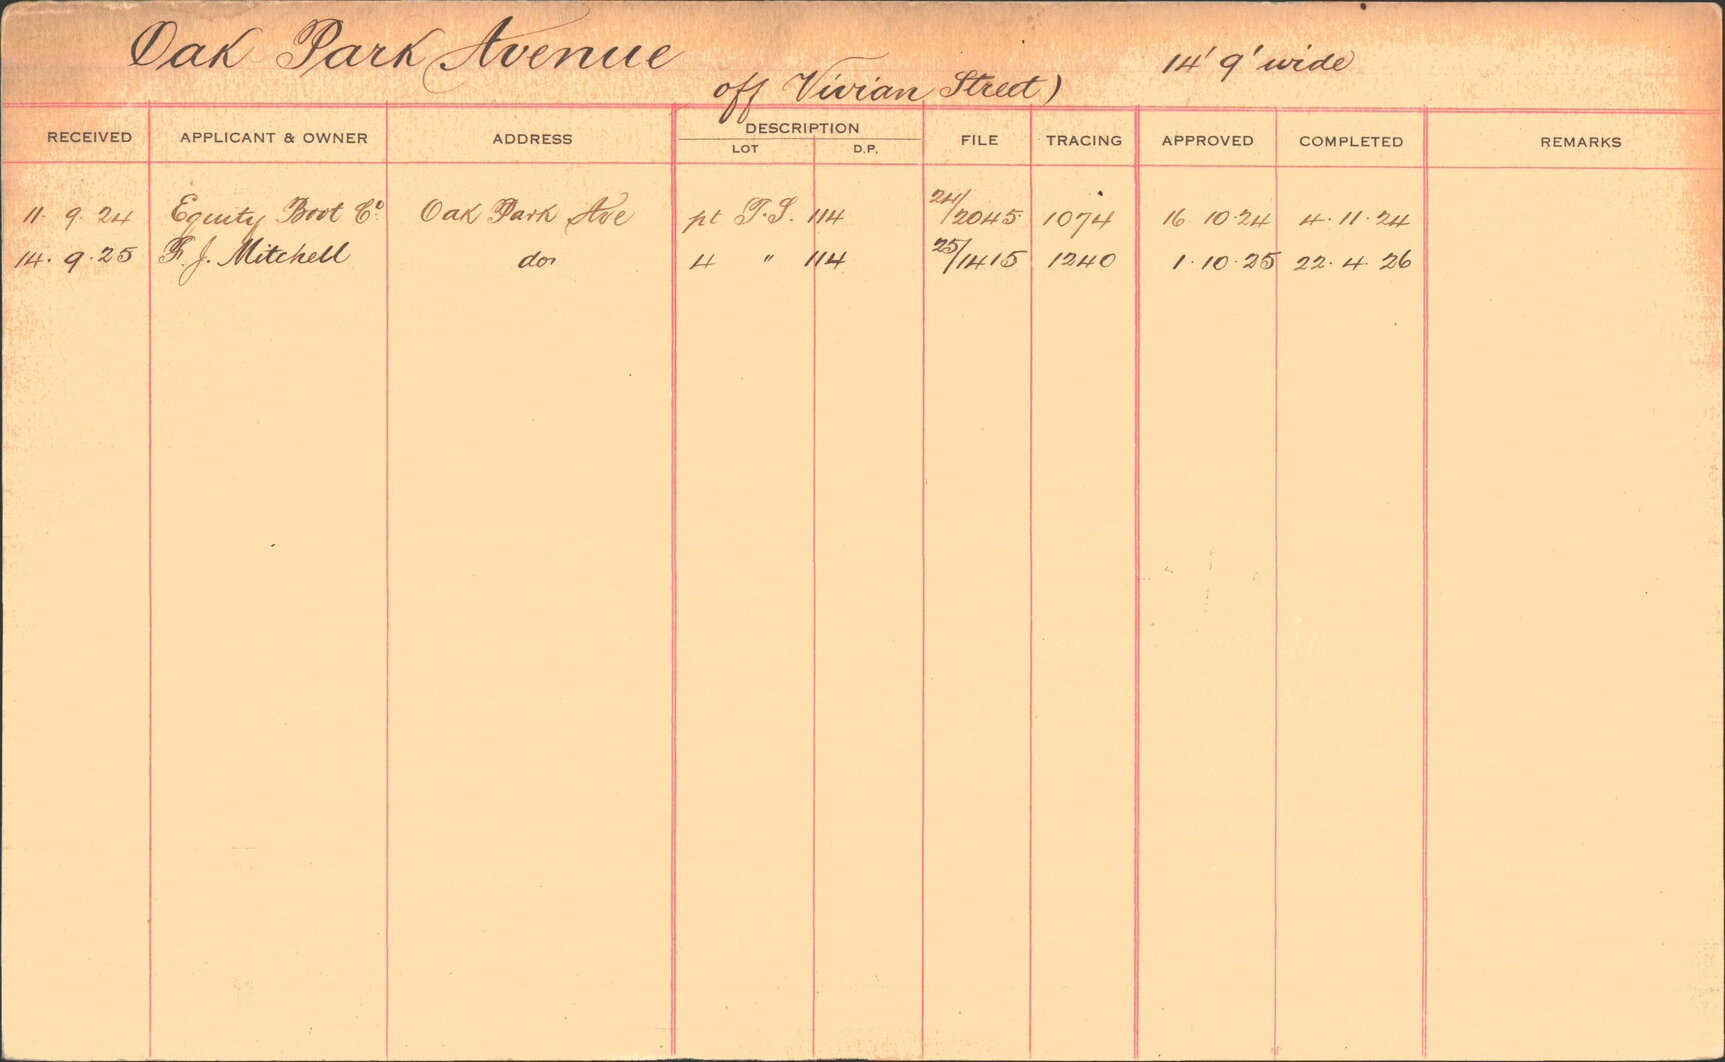 Oak Park Avenue
off Vivian Street)
14' 9' wide
RECEIVED APPLICANT & OWNER ADDRESS DESCRIPTION FILE TRACING APPROVED COMPLETED REMARKS
LOT D.P.
11. 9. 24 Equity Boot Co. Oak Park Ave pt T.S. 114 24/2045 1074 16. 10. 24 4. 11. 24
14. 9. 25 F. J. Mitchell do 4 " 114 25/1415 1240 1. 10. 25 22. 4. 26